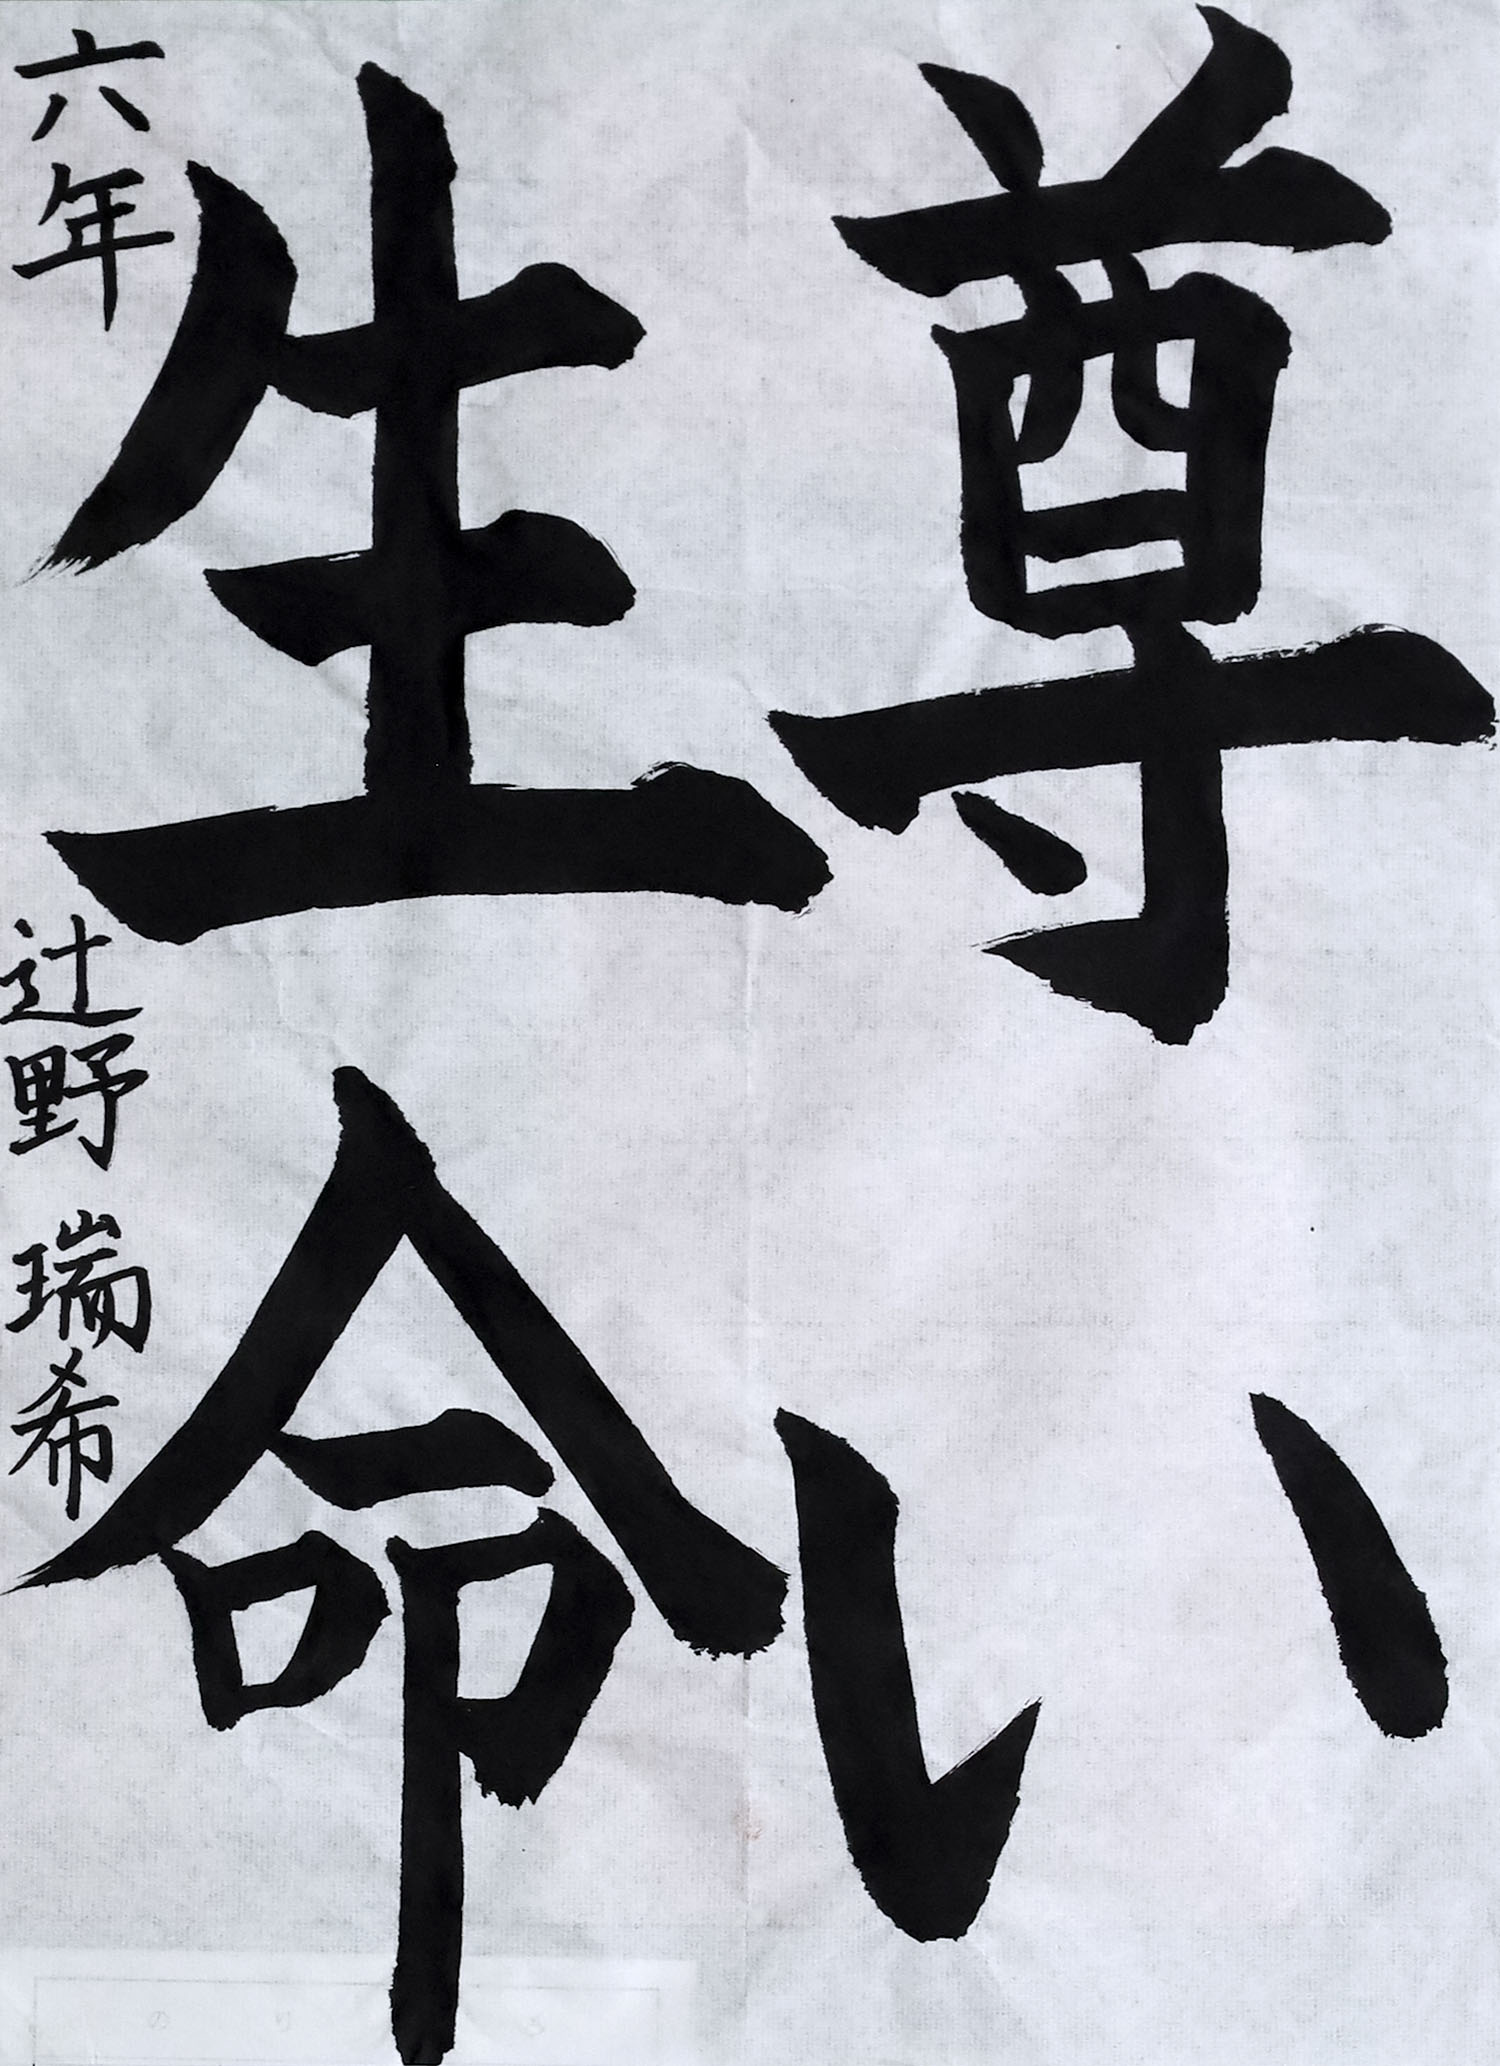 尊い
生命
六年 辻野 瑞希